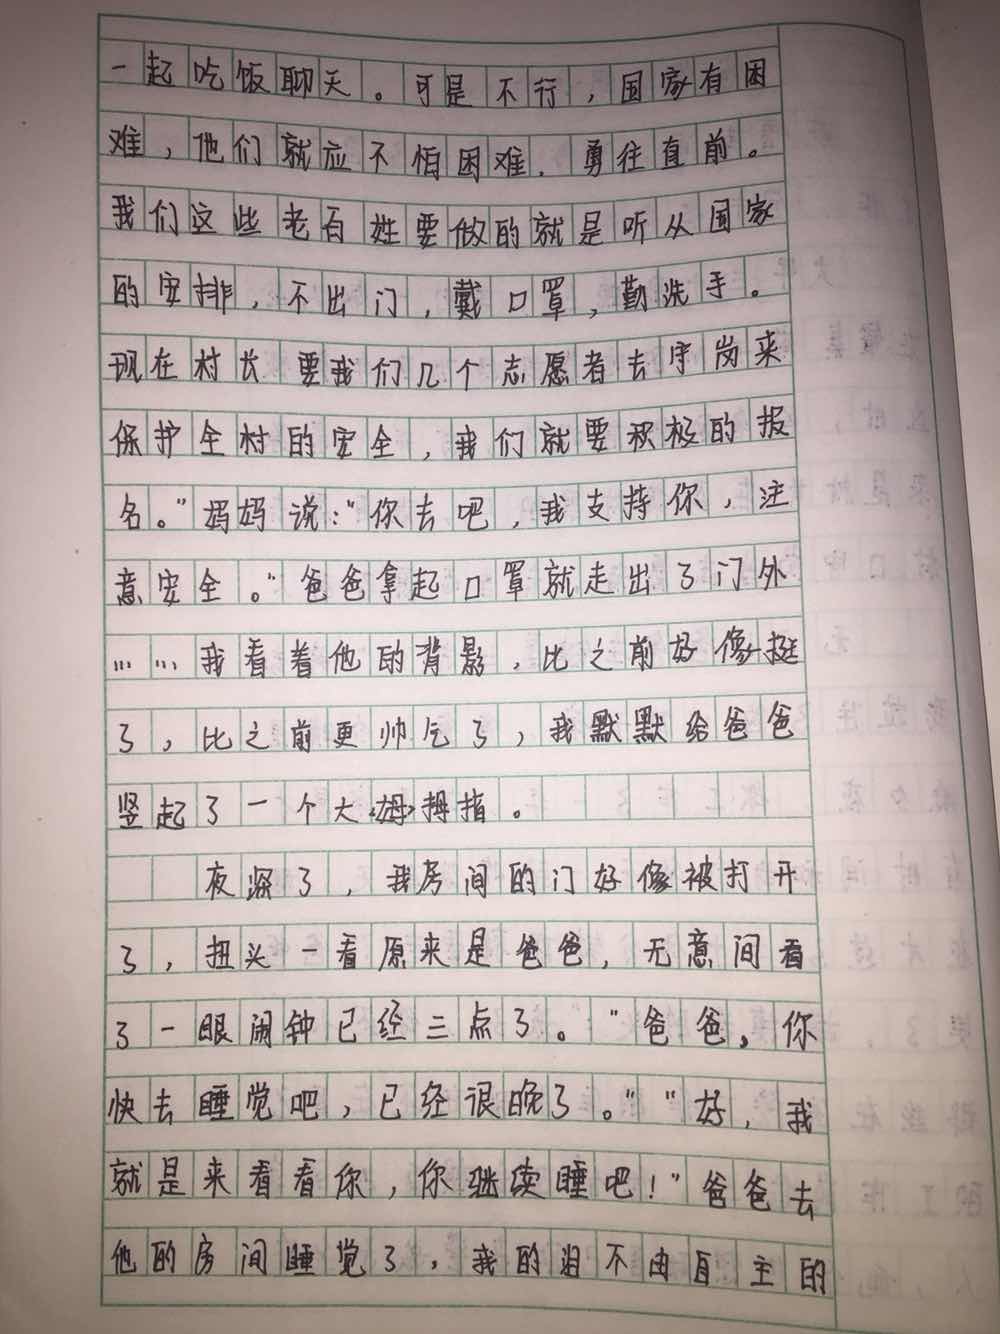 一起吃饭聊天。可是不行，国家有困
难，他们就应不怕困难．勇往直前。
我们这些老百姓要做的就是听从国家
的安排，不出门，戴口罩，勤洗手。
现在村长要我们几个志愿者去守岗来
保护全村的安全，我们就要积极的报
名。”妈妈说：“你去吧，我支持你，注
意安全。”爸爸拿起口罩就走出了门外
……我看着他的背影，比之前好像挺
了，比之前更帅气了，我默默给爸爸
竖起了一个大拇指。
夜深了，我房间的门好像被打开
了，扭头一看原来是爸爸，无意间看
了一眼闹钟已经三点了。“爸爸，你
快去睡觉吧，已经很晚了。”“好，我
就是来看看你，你继续睡吧！”爸爸去
他的房间睡觉了，我的泪不由自主的